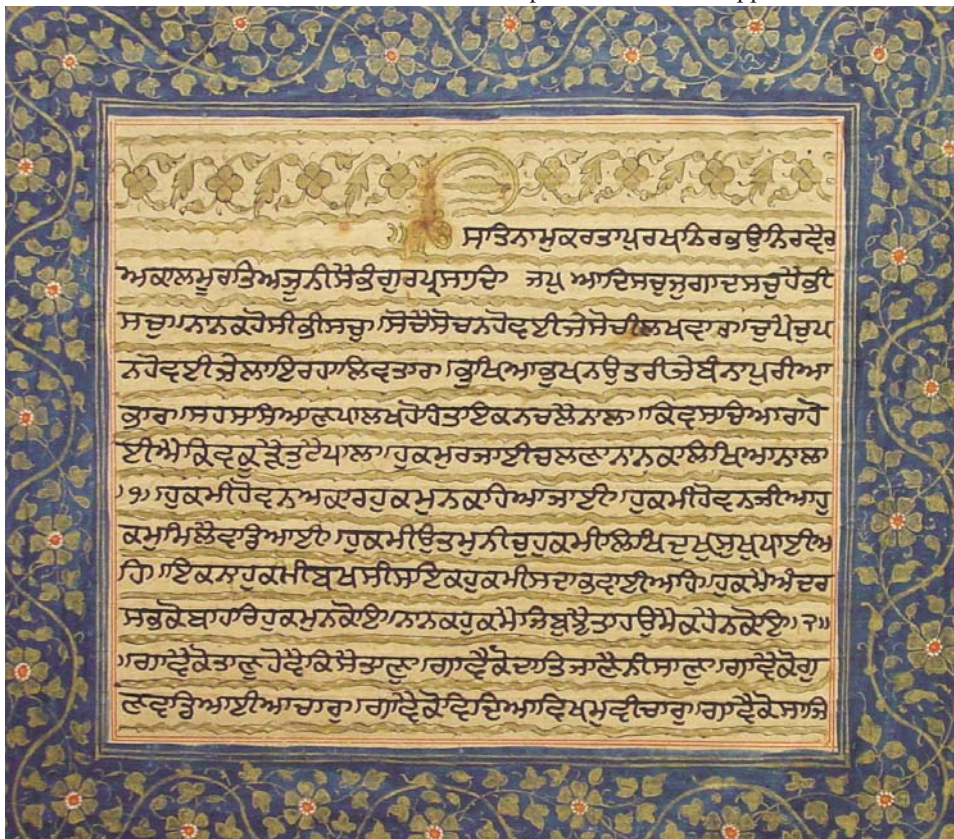 ੴ ਸਤਿਨਾਮੁਕਰਤਾਪੁਰਖਨਿਰਭਉਨਿਰਵੈਰੁ
ਅਕਾਲਮੂਰਤਿਅਜੂਨੀਸੈਭੰਗੁਰਪ੍ਰਸਾਦਿ ਜਪੁ ਆਦਿਸਚੁਜੁਗਾਦਸਚੁਹੈਭੀ
ਸਚੁ॥ਨਾਨਕਹੋਸੀਭੀਸਚੁ॥ਸੋਚੈਸੋਚਨਹੋਵਈਜੇਸੋਚੀਲਖਵਾਰ॥ਚੁਪੈਚੁਪ
ਨਹੋਵਈਜੇਲਾਇਰਹਾਲਿਵਤਾਰ॥ਭੁਖਿਆਭੁਖਨਉਤਰੀਜੇਬੰਨਾਪੁਰੀਆ
ਭਾਰ॥ਸਹਸਸਿਆਣਪਾਲਖਹੋਹਿਤਾਇਕਨਚਲੈਨਾਲ॥ਕਿਵਸਚਿਆਰਾਹੋ
ਈਐਕਿਵਕੂੜੈਤੁਟੈਪਾਲ॥ਹੁਕਮੁਰਜਾਈਚਲਣਾਨਾਨਕਲਿਖਿਆਨਾਲ॥
੧॥ਹੁਕਮੀਹੋਵਨਅਕਾਰਹੁਕਮੁਨਕਹਿਆਜਾਈ॥ਹੁਕਮੀਹੋਵਨਜੀਆਹੁ
ਕਮੁਮਿਲੈਵਡਿਆਈ॥ਹੁਕਮੀਉਤਮੁਨੀਚੁਹੁਕਮੀਲਿਖਿਦੁਖੁਸੁਖੁਪਾਈਅ
ਹਿ॥ਇਕਨਾਹੁਕਮੀਬਖਸੀਸਇਕਹੁਕਮੀਸਦਾਭਵਾਈਅਹਿ॥ਹੁਕਮੈਅੰਦਰ
ਸਭਕੋਬਾਹਰਿਹੁਕਮੁਨਕੋਇ॥ਨਾਨਕਹੁਕਮੈਜੇਬੁਝੈਤਾਹਉਮੈਕਹੈਨਕੋਇ॥੨॥
ਗਾਵੈਕੋਤਾਣੁਹੋਵੈਕਿਸੈਤਾਣੁ॥ਗਾਵੈਕੋਦਾਤਿਜਾਣੈਨੀਸਾਣੁ॥ਗਾਵੈਕੋਗੁ
ਣਵਡਿਆਈਆਚਾਰ॥ਗਾਵੈਕੋਵਿਦਿਆਵਿਖਮੁਵੀਚਾਰੁ॥ਗਾਵੈਕੋਸਾਜਿ